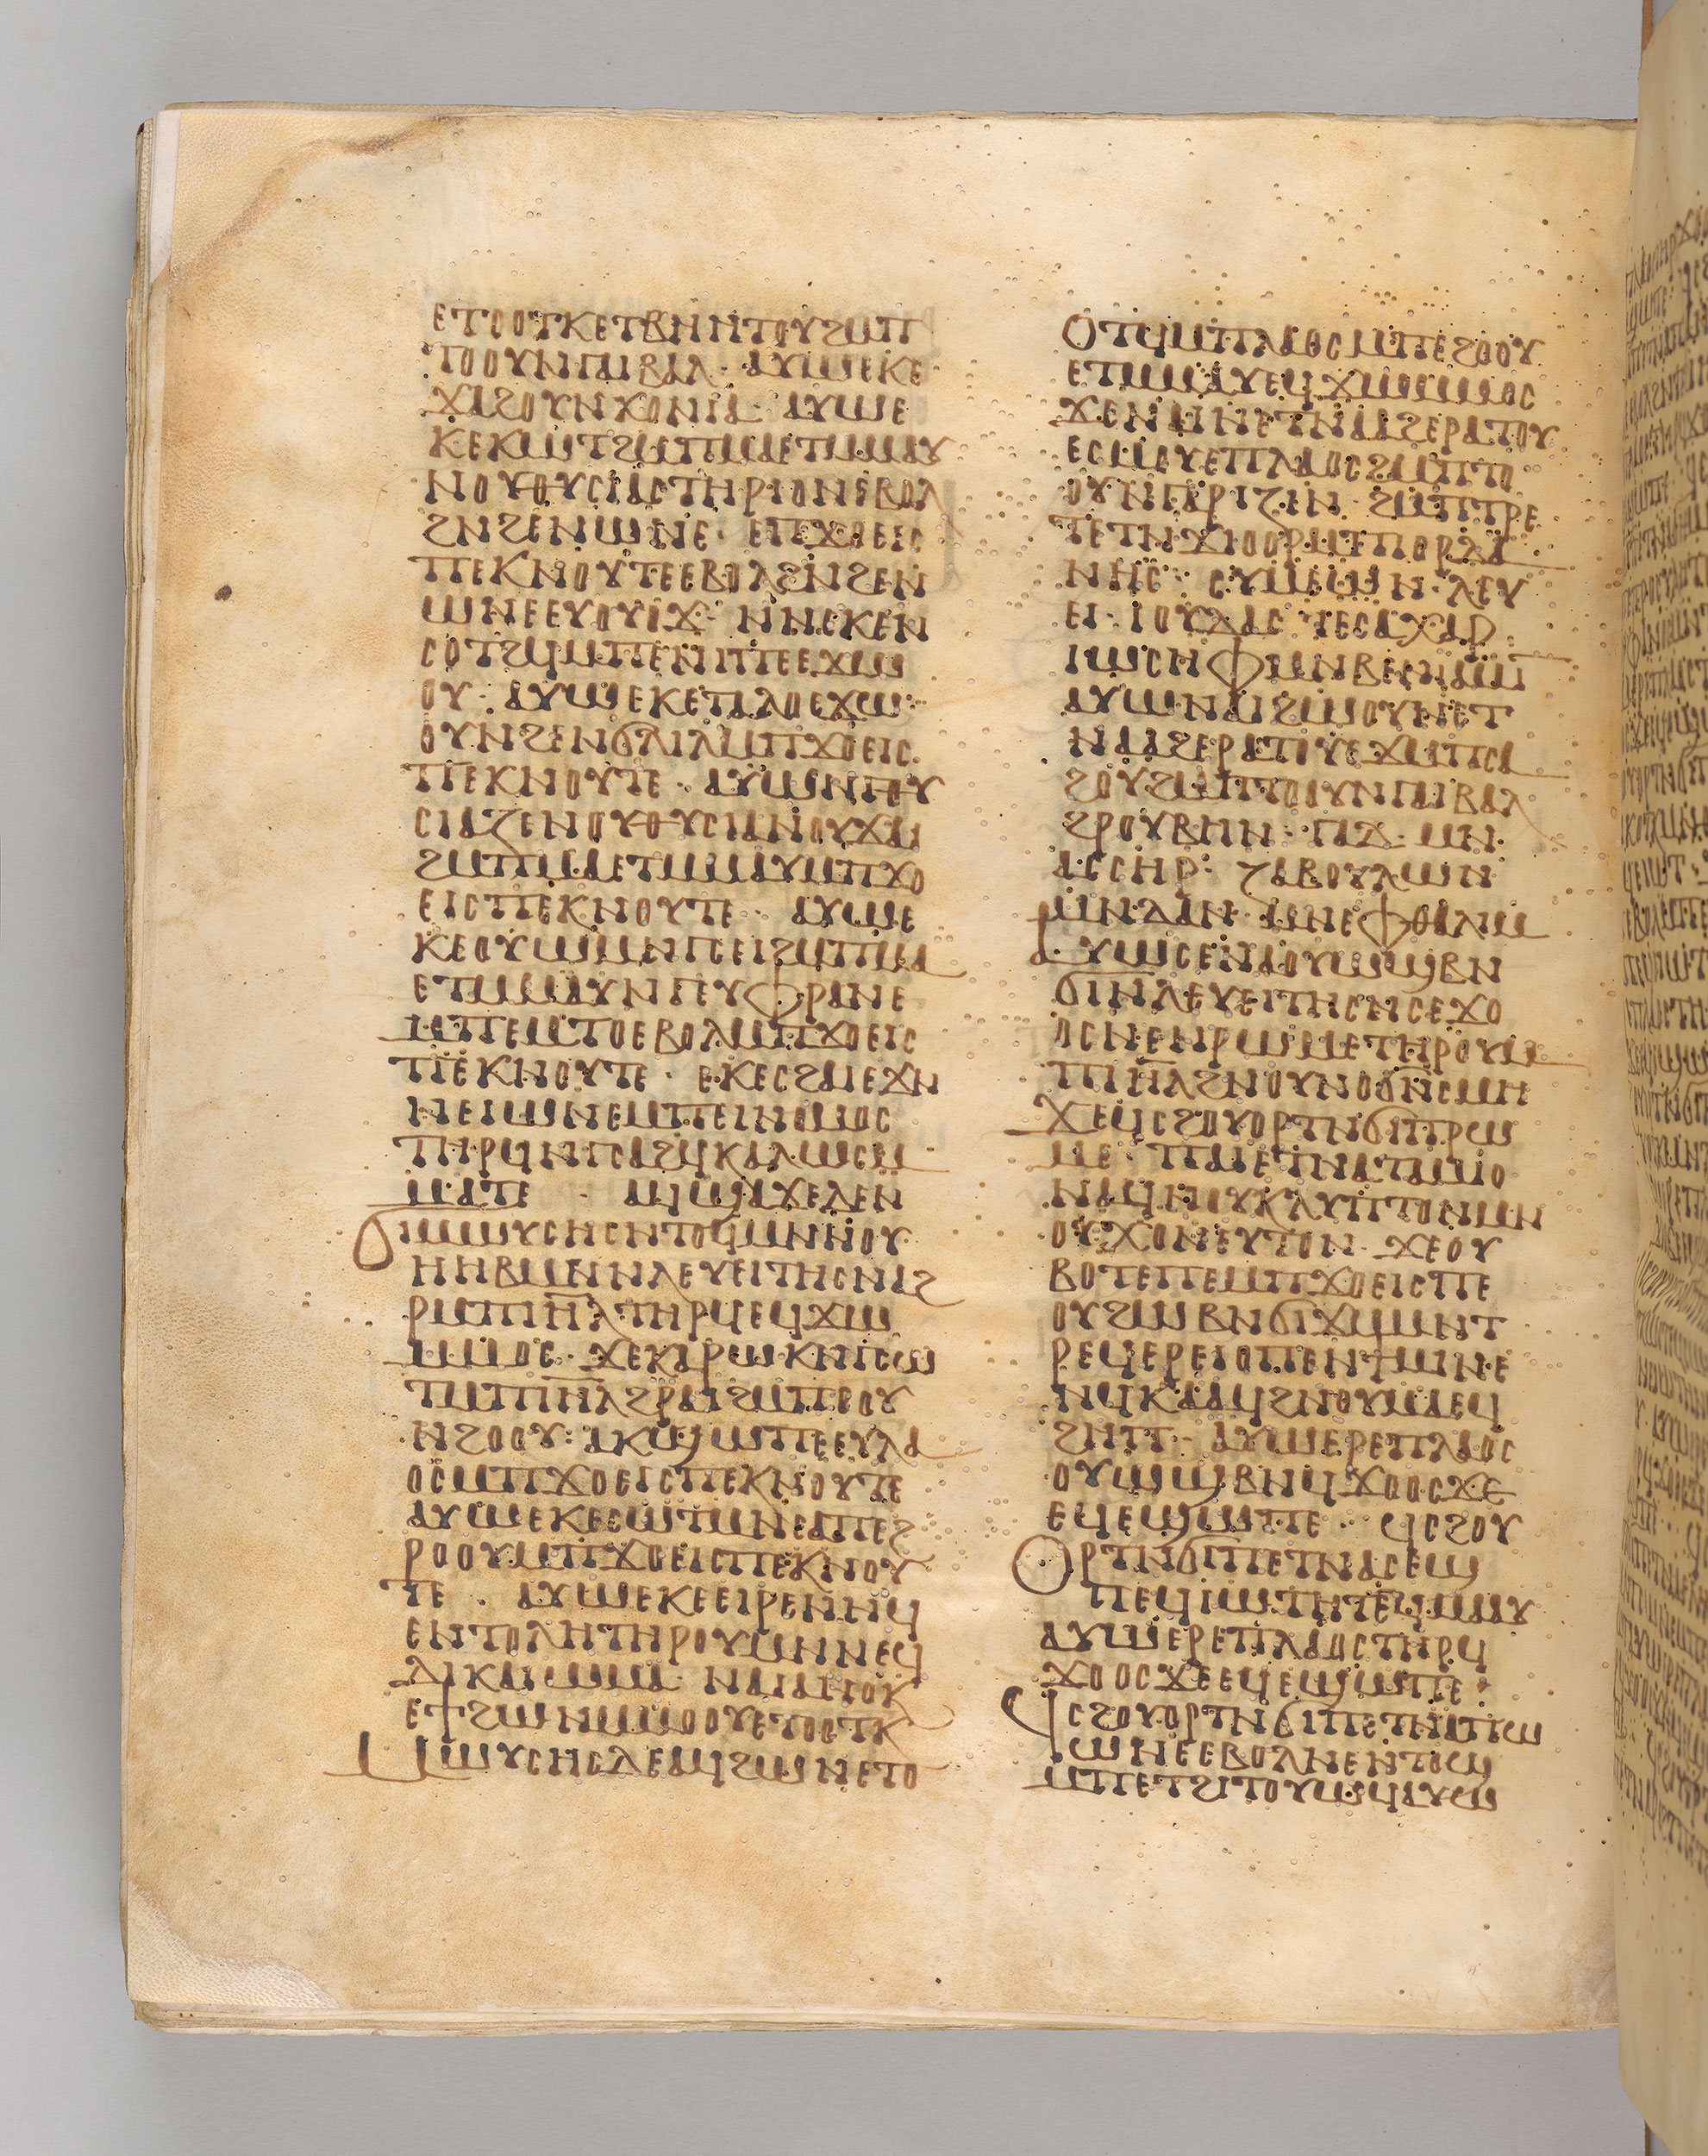 ⲉⲧⲥⲟⲧⲕⲉⲧⲃⲏⲏⲧⲟⲩϩⲙⲡ
ⲧⲟⲟⲩⲛⲅⲁⲓⲃⲁⲗ· ⲁⲩⲱⲉⲕⲉ
ϫⲁϩⲟⲩⲛϫⲟⲛⲓⲁ· ⲁⲩⲱⲉ
ⲕⲉⲕⲱⲧϩⲙⲡⲙⲁⲉⲧⲙⲙⲁⲩ
ⲛⲟⲩⲑⲩⲥⲓⲁⲥⲧⲏⲣⲓⲟⲛⲉⲃⲟⲗ
ϩⲛϩⲉⲛⲱⲛⲉ· ⲉⲡϫⲟⲉⲓⲥ
ⲡⲉⲕⲛⲟⲩⲧⲉⲉⲃⲟⲗϩⲛϩⲉⲛ
ⲱⲛⲉⲉⲩⲟⲩⲟϫ· ⲛⲛⲉⲕⲉⲛ
ⲥⲟⲧϩϥⲙⲡⲉⲛⲓⲡⲉⲉϫⲱ
ⲟⲩ· ⲁⲩⲱⲉⲕⲉⲧⲁⲗⲟⲉϫⲱ
ⲟⲩⲛϩⲉⲛϭⲗⲓⲗⲙⲡϫⲟⲉⲓⲥ
ⲡⲉⲕⲛⲟⲩⲧⲉ· ⲁⲩⲱⲛⲅⲑⲩ
ⲥⲓⲁⲍⲉⲛⲟⲩⲑⲩⲥⲓⲁⲛⲟⲩϫⲁⲓ
ϩⲙⲡⲙⲁⲉⲧⲙⲙⲁⲩⲙⲡϫⲟ
ⲉⲓⲥⲡⲉⲕⲛⲟⲩⲧⲉ· ⲁⲩⲱⲉ
ⲕⲉⲟⲩⲱⲙⲛⲅⲥⲉⲓϩⲙⲡⲙⲁ
ⲉⲧⲙⲙⲁⲩⲛⲅⲉⲩⲫⲣⲁⲛⲉ
ⲙⲡⲉⲙⲧⲟⲉⲃⲟⲗⲙⲡϫⲟⲉⲓⲥ
ⲡⲉⲕⲛⲟⲩⲧⲉ· ⲉⲕⲉⲥϩⲁⲓⲉϫⲛ
ⲛⲉⲓⲱⲛⲉⲙⲡⲉⲓⲛⲟⲙⲟⲥ
ⲧⲏⲣϥⲛⲅⲥⲁϩϥⲕⲁⲗⲱⲥⲉⲙ
ⲙⲁⲧⲉ · ⲁϥϣⲁϫⲉⲇⲉⲛ
ϭⲓⲙⲱⲩⲥⲏⲥⲛⲧⲟϥⲙⲛⲛⲟⲩ
ⲏⲏⲃⲙⲛⲛⲗⲉⲩⲉⲓⲧⲏⲥⲛⲁϩ
ⲣⲙⲡⲓⲏ̅ⲗⲧⲏⲣϥⲉϥϫⲱ
ⲙⲙⲟⲥ· ϫⲉⲕⲁⲣⲱⲕⲛⲅⲥⲱ
ⲧⲙⲡⲓⲏ̅ⲗϩⲣⲁⲓϩⲙⲡⲉⲟⲩ
ⲛϩⲟⲟⲩ: ⲁⲕϣⲱⲡⲉⲉⲩⲗⲁ
ⲟⲥⲙⲡϫⲟⲉⲓⲥⲡⲉⲕⲛⲟⲩⲧⲉ
ⲁⲩⲱⲉⲕⲉⲥⲱⲧⲙⲛⲥⲁⲡⲉϩ
ⲣⲟⲟⲩⲙⲡϫⲟⲉⲓⲥⲡⲉⲕⲛⲟⲩ
ⲧⲉ · ⲁⲩⲱⲉⲕⲉⲉⲓⲣⲉⲛⲛⲉϥ
ⲉⲛⲧⲟⲗⲏⲧⲏⲣⲟⲩⲙⲛⲛⲉϥ
ⲇⲓⲕⲁⲓⲱⲙⲁ· ⲛⲁⲓⲁⲛⲟⲕ
ⲉϯϩⲱⲛⲙⲙⲟⲟⲩⲉⲧⲟⲟⲧⲕ
ⲙⲱⲩⲥⲏⲥⲇⲉⲁϥϩⲱⲛⲉⲧⲟ
ⲟⲧϥⲙⲡⲗⲁⲟⲥⲙⲡⲉϩⲟⲟⲩ
ⲉⲧⲙⲙⲁⲩⲉϥϫⲱⲙⲙⲟⲥ
ϫⲉⲛⲁⲓⲛⲉⲧⲛⲁⲁϩⲉⲣⲁⲧⲟⲩ
ⲉⲥⲙⲟⲩⲉⲡⲗⲁⲟⲥϩⲙⲡⲧⲟ
ⲟⲩⲛⲅⲁⲣⲓⲍⲓⲛ· ϩⲙⲡⲧⲣⲉ
ⲧⲉⲧⲛϫⲓⲟⲟⲣⲙⲡⲓⲟⲣⲇⲁ
ⲛⲏⲥ· ⲥⲩⲙⲉⲱⲛ· ⲗⲉⲩ
ⲉⲓ· ⲓⲟⲩⲇⲁⲥ· ⲓⲉⲥⲁⲭⲁⲣ·
ⲓⲱⲥⲏⲫⲙⲛⲃⲉⲛⲓⲁⲙⲓⲛ
ⲁⲩⲱⲛⲁⲓϩⲱⲟⲩⲛⲉⲧ
ⲛⲁⲁϩⲉⲣⲁⲧⲟⲩⲉϫⲙⲡⲥⲁ
ϩⲟⲩϩⲙⲡⲧⲟⲟⲩⲛⲅⲁⲓⲃⲁⲗ
ϩⲣⲟⲩⲃⲏⲛ· ⲅⲁⲇ· ⲙⲛ
ⲁⲥⲥⲏⲣ· ⲍⲁⲃⲟⲩⲗⲱⲛ
ⲙⲛⲇⲁⲛ· ⲙⲛⲛⲉⲫⲑⲁⲗⲓⲙ
ⲁⲩⲱⲥⲉⲛⲁⲟⲩⲱϣⲃⲛ
ϭⲓⲛⲗⲉⲩⲉⲓⲧⲏⲥⲛⲥⲉϫⲟ
ⲟⲥⲛⲉⲛⲣⲱⲙⲉⲧⲏⲣⲟⲩⲙ
ⲡⲓⲏ̅ⲗϩⲛⲟⲩⲛⲟϭⲛⲥⲙⲏ
ϫⲉϥⲥϩⲟⲩⲟⲣⲧⲛϭⲓⲡⲣⲱ
ⲙⲉ· ⲡⲁⲓⲉⲧⲛⲁⲧⲁⲙⲓⲟ
ⲛⲁϥⲛⲟⲩⲕⲗⲩⲡⲧⲟⲛⲙⲛ
ⲟⲩⲭⲟⲛⲉⲩⲧⲟⲛ· ϫⲉⲟⲩ
ⲃⲟⲧⲉⲡⲉⲙⲡϫⲟⲉⲓⲥⲡⲉ
ⲟⲩϩⲱⲃⲛϭⲓϫⲙⲙⲛⲧ
ⲣⲉϥⲉⲣⲉⲓⲟⲡⲉⲛϥϣⲓⲛⲉ
ⲛϥⲕⲁⲁϥϩⲛⲟⲩⲙⲁⲉϥ
ϩⲏⲡ· ⲁⲩⲱⲉⲣⲉⲡⲗⲁⲟⲥ
ⲟⲩⲱϣⲃⲛϥϫⲟⲟⲥϫⲉ
ⲉϥⲉϣⲱⲡⲉ· ϥⲥϩⲟⲩ
ⲟⲣⲧⲛϭⲓⲡⲉⲧⲛⲁⲥⲉϣ
ⲡⲉϥⲓⲱⲧⲏⲧⲉϥⲙⲁⲁⲩ
ⲁⲩⲱⲉⲣⲉⲡⲗⲁⲟⲥⲧⲏⲣϥ
ϫⲟⲟⲥϫⲉⲉϥⲉϣⲱⲡⲉ·
ϥⲥϩⲟⲩⲟⲣⲧⲛϭⲓⲡⲉⲧⲛⲁⲡⲱ
ⲱⲛⲉⲉⲃⲟⲗⲛⲉⲛⲧⲟϣ
ⲙⲡⲉⲧϩⲓⲧⲟⲩⲱϥⲁⲩⲱ